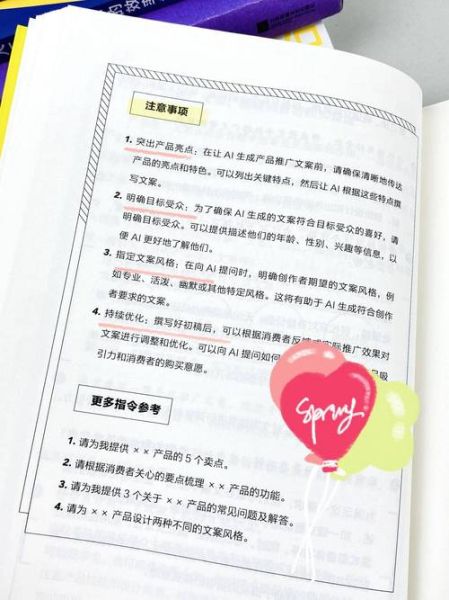 注意事项
1. 突出产品亮点：在让 AI 生成产品推广文案前，请确保清晰地传达
产品的亮点和特色。可以列出关键特点，然后让 AI 根据这些特点撰
写文案。
2. 明确目标受众：为了确保 AI 生成的文案符合目标受众的喜好，请
明确目标受众。可以提供描述他们的年龄、性别、兴趣等信息，以
便 AI 更好地了解他们。
3. 指定文案风格：在向 AI 提问时，明确创作者期望的文案风格，例
如专业、活泼、幽默或其他特定风格。这将有助于 AI 生成符合创作
者要求的文案。
4. 持续优化：撰写好初稿后，可以根据消费者反馈或实际推广效果对
文案进行调整和优化。可以向 AI 提问如何 品吸
引力和消费者的购买意愿。
更多指令参考
1. 请为我提供 ×× 产品的 5 个卖点。
2. 请根据消费者关心的要点梳理 ×× 产品的功能。
3. 请为我提供 3 个关于 ×× 产品的常见问题及解答。
4. 请为 ×× 产品设计两种不同的文案风格。
Spring